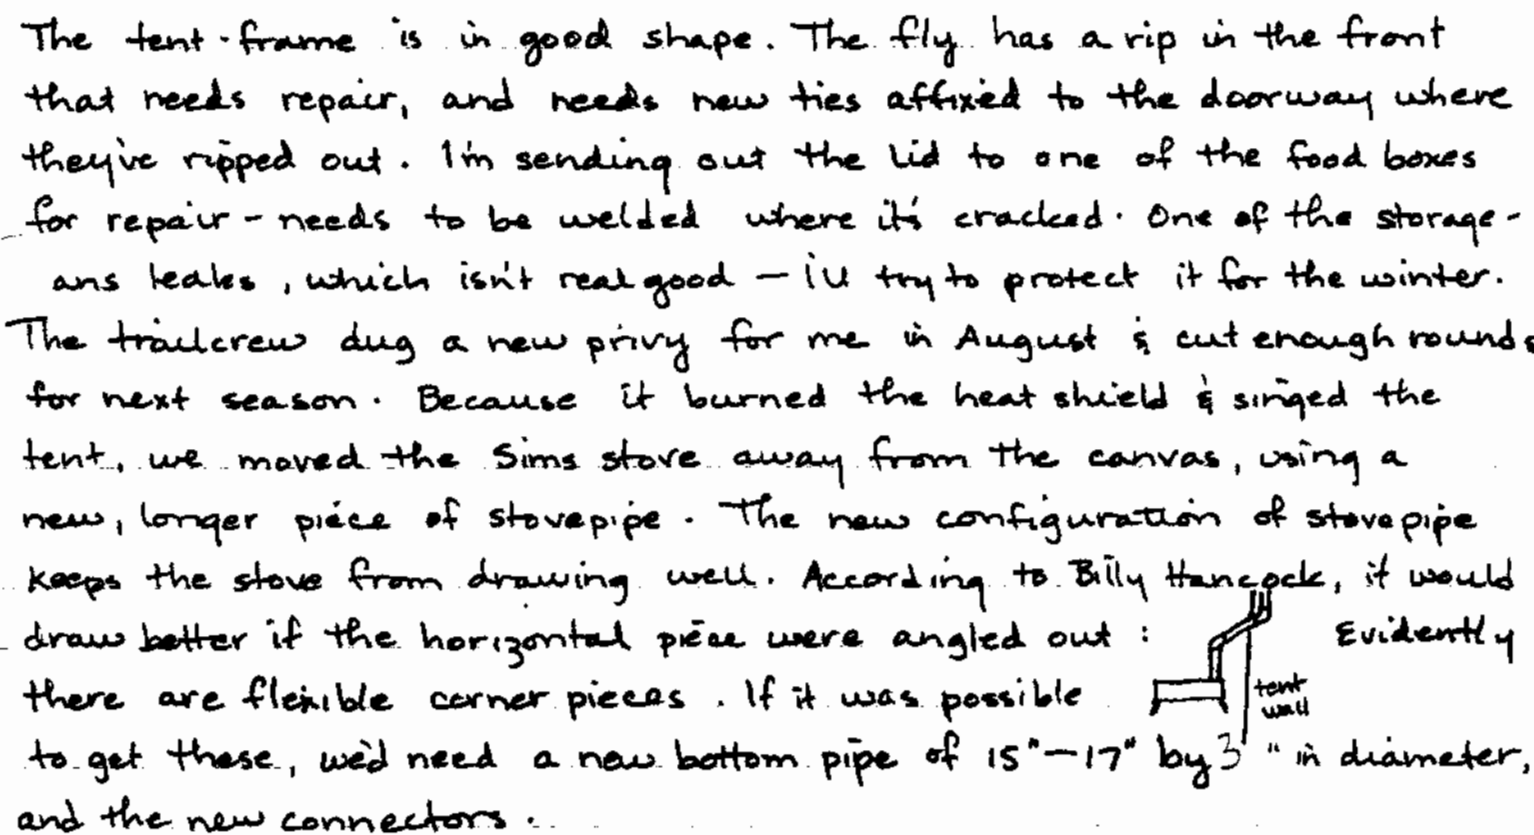 The tent-frame is in good shape. The fly has a rip in the front
that needs repair, and needs new ties affixed to the doorway where
they've ripped out. I'm sending out the lid to one of the food boxes
for repair - needs to be welded where it's cracked. One of the storage-
ans leaks, which isn't real good — i'll try to protect it for the winter.
The trailcrew dug a new privy for me in August & cut enough rounds
for next season. Because it burned the heat shield & singed the
tent, we moved the Sims stove away from the canvas, using a
new, longer piece of stovepipe. The new configuration of stovepipe
keeps the stove from drawing well. According to Billy Hancock, it would
draw better if the horizontal piece were angled out : Evidently
there are flexible corner pieces. If it was possible
tent
wall
to get these, we'd need a new bottom pipe of 15"—17" by 3" in diameter,
and the new connectors.